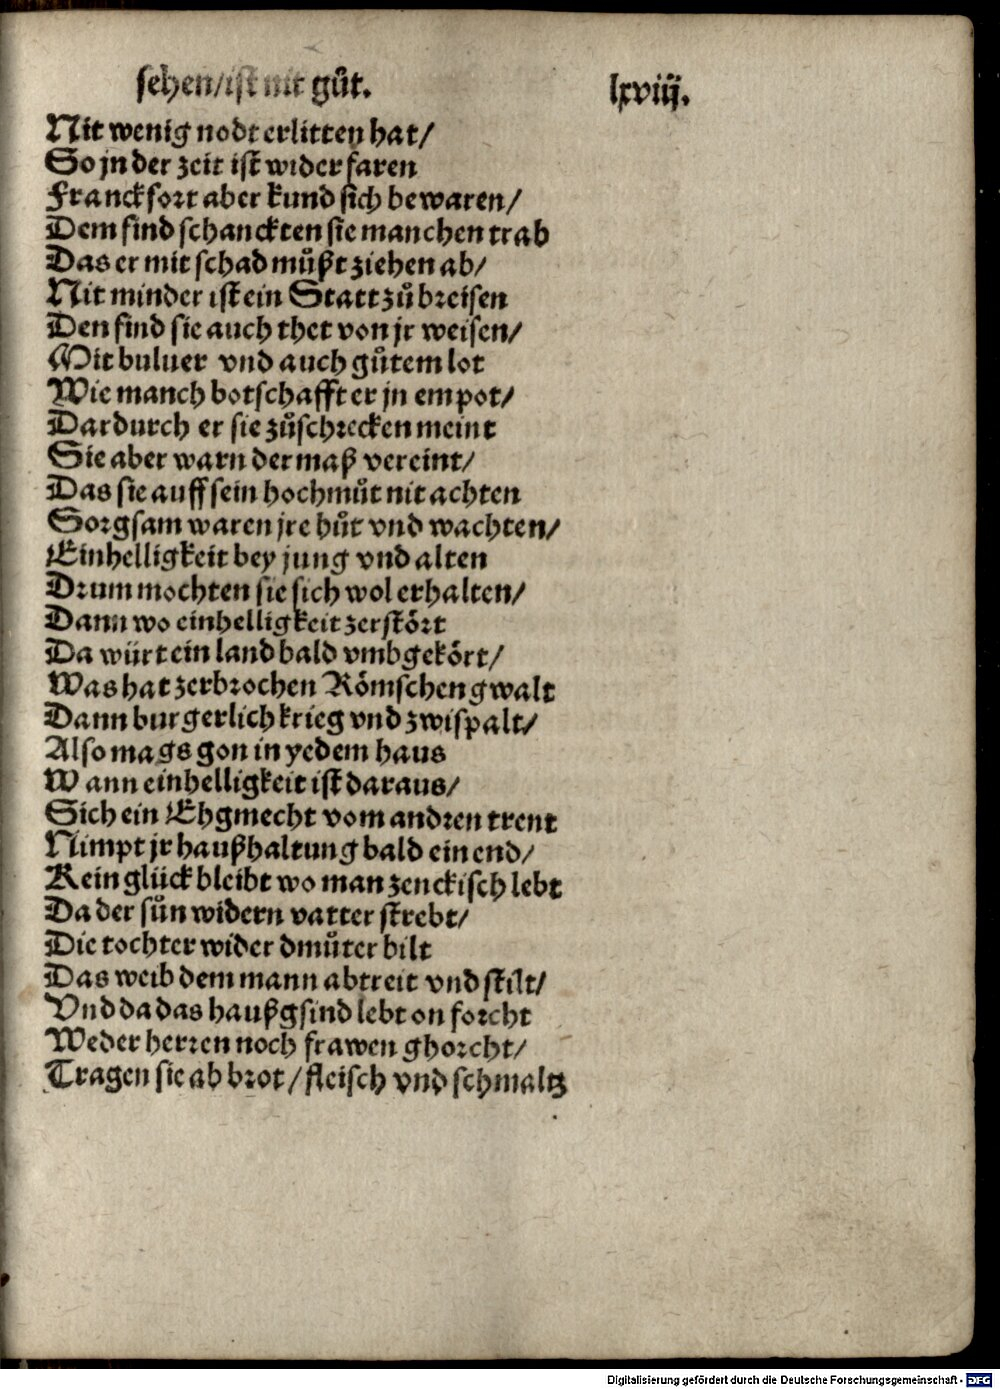 sehen/ist nit gůt. lxviij.
Nit wenig nodt erlitten hat/
So jn der zeit ist widerfaren
Franckfort aber kund sich bewaren/
Dem find schanckten sie manchen trab
Das er mit schad můßt ziehen ab/
Nit minder ist ein Statt zů breisen
Den find sie auch thet von jr weisen/
Mit buluer vnd auch gůtem lot
Wie manch botschafft er jn empot/
Dardurch er sie zůschrecken meint
Sie aber warn dermaß vereint/
Das sie auff sein hochmůt nit achten
Sorgsam waren jre hůt vnd wachten/
Einhelligkeit bey jung vnd alten
Drum mochten sie sich wol erhalten/
Dann wo einhelligkeit zerstört
Da würt ein land bald vmbgekört/
Was hat zerbrochen Römschen gwalt
Dann burgerlich krieg vnd zwispalt/
Also mags gon in yedem haus
Wann einhelligkeit ist daraus/
Sich ein Ehgmecht vom andren trent
Nimpt jr haußhaltung bald ein end/
Kein glück bleibt wo man zenckisch lebt
Da der sůn widern vatter strebt/
Die tochter wider dmůter bilt
Das weib dem mann abtreit vnd stilt/
Vnd da das haußgsind lebt on forcht
Weder herren noch frawen ghorcht/
Tragen sie ab brot/fleisch vnd schmaltz
Digitalisierung gefördert durch die Deutsche Forschungsgemeinschaft - DFG